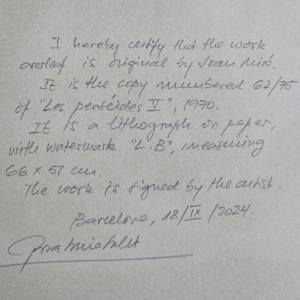 I hereby certify that the work
overleaf is original by Joan Miró.
It is the copy numbered 62/75
of "Les pertéides V", 1970.
It is a lithograph on paper,
with watermark "L.B", measuring
66 x 51 cm.
The work is signed by the artist.
Barcelona, 18/IX/2024.